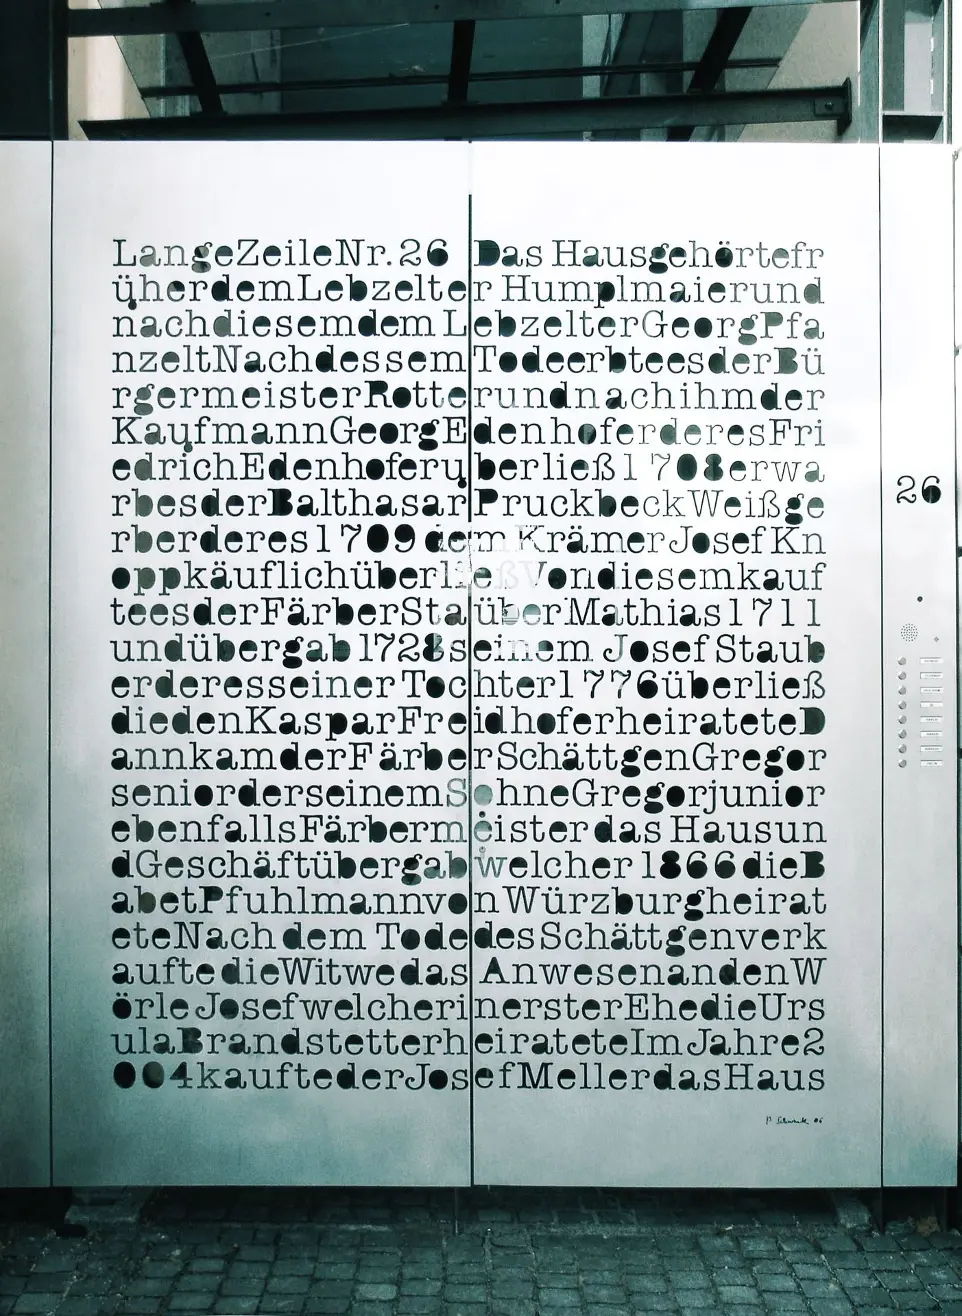 LangeZeileNr.26 Das Hausgehörtefr
üherdemLebzelter Humplmaierund
nachdiesemdem LebzelterGeorgPfa
nzeltNachdessem TodeerbteesderBü
rgermeisterRotterundnachihmder
KaufmannGeorgEdenhoferderesFri
edrichEdenhoferüberließ1708erwa
rbesderBalthasarPruckbeckWeißge
rberderes1709 dem KrämerJosefKn
oppkäuflichüberließVondiesemkauf
teesderFärberStaüberMathias1711
undübergab1728seinem Josef Staub
erderesseiner Tochter1776überließ
diedenKasparFreidhoferheirateteD
annkamderFärberSchättgenGregor
seniorderseinemSohneGregorjunior
ebenfallsFärbermeister das Hausun
dGeschäftübergabwelcher 1866 dieB
abetPfuhlmannvon Würzburgheirat
eteNach dem TodedesSchättgenverk
auftedieWitwedas AnwesenandenW
örle JosefwelcherinersterEhedieUrs
ulaBrandstetterheirateteImJahre2
004kaufteder JosefMellerdasHaus
26